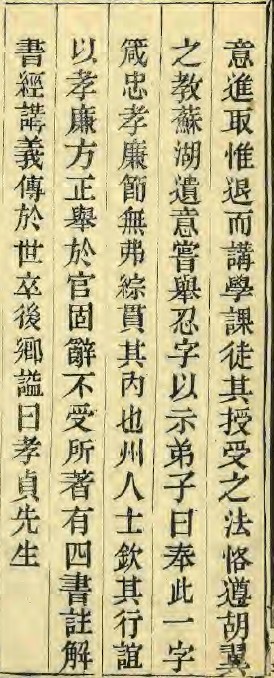 意進取惟退而講學課徒其授受之法恪遵胡翼
之教蘇湖遺意嘗舉忍字以示弟子曰奉此一字
箴忠孝廉節無弗綜貫其內也州人士欽其行誼
以孝廉方正舉於官固辭不受所著有四書註解
書經講義傳於世卒後鄉謚曰孝貞先生